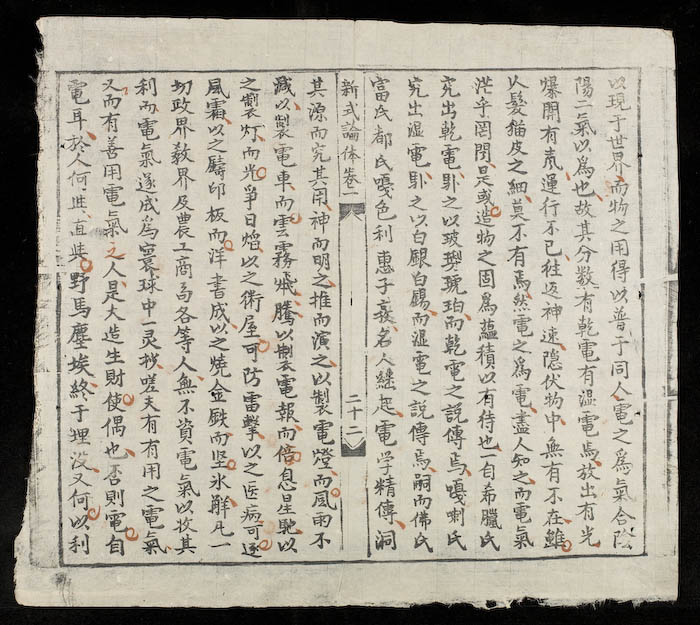 以現于世界而物之用得以普于同人電之為氣合陰
陽二氣以為也故其分数有乾電有温電焉放出有光
爆開有氣運行不已往返神速隐伏物中無有不在雖
人髮猫皮之細莫不有焉然電之為電盡人知之而電氣
茫乎罔閉是或造物之固為蘊積以有待也一自希臘氏
究出乾電卧之以玻璃琥珀而乾電之說傳焉嘎喇氏
究出湿電卧之以白銀白錫而湿電之說傳焉嗣而佛氏
富氏都氏嘎色利惠子義名人継起電学精傳洞
新式論体卷二
二十二
其源而究其用神而明之推而演之以製電燈而風雨不
滅以製電車而雲霧飛騰以製電報而倍息星馳以
之製灯而光爭日焰以之衛屋可防雷擊以之医病可逐
風霜以之鑄印板而洋書成以之燒金鉄而坚氷解凡一
切政界教界及農工商各各等人無不資電氣以收其
利而電氣遂成為寰球中一灵物嗟夫有有用之電氣
又而有善用電氣之人是大造生財使偶也否則電自
電耳於人何与直與野馬塵埃終于埋沒又何以利